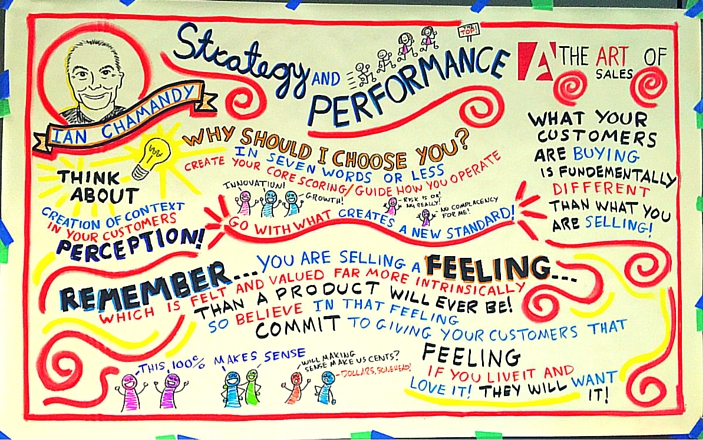 Strategy AND PERFORMANCE
THE TOP!
A THE ART OF
SALES
IAN CHAMANDY
WHY SHOULD I CHOOSE YOU?
IN SEVEN WORDS OR LESS
CREATE YOUR CORE SCORING/GUIDE HOW YOU OPERATE
THINK
ABOUT
CREATION OF CONTEXT
IN YOUR CUSTOMERS
PERCEPTION!
INNOVATION!
GROWTH!
NO COMPLACENCY
FOR ME!
GO WITH WHAT CREATES A NEW STANDARD!
WHAT YOUR
CUSTOMERS
ARE BUYING
IS FUNDEMENTALLY
DIFFERENT
THAN WHAT YOU
ARE SELLING!
REMEMBER... YOU ARE SELLING A FEELING...
WHICH IS FELT AND VALUED FAR MORE INTRINSICALLY
THAN A PRODUCT WILL EVER BE!
SO BELIEVE IN THAT FEELING
COMMIT TO GIVING YOUR CUSTOMERS THAT
FEELING
IF YOU LIVE IT AND
LOVE IT! THEY WILL WANT
IT!
THIS 100% MAKES SENSE
WILL MAKING
SENSE MAKE US CENTS?